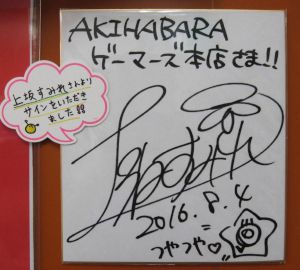 AKIHABARA
ゲーマーズ本店さま!!
上坂すみれさんより
サインをいただき
ました
上坂すみれ
2016.8.4
つやつや♡